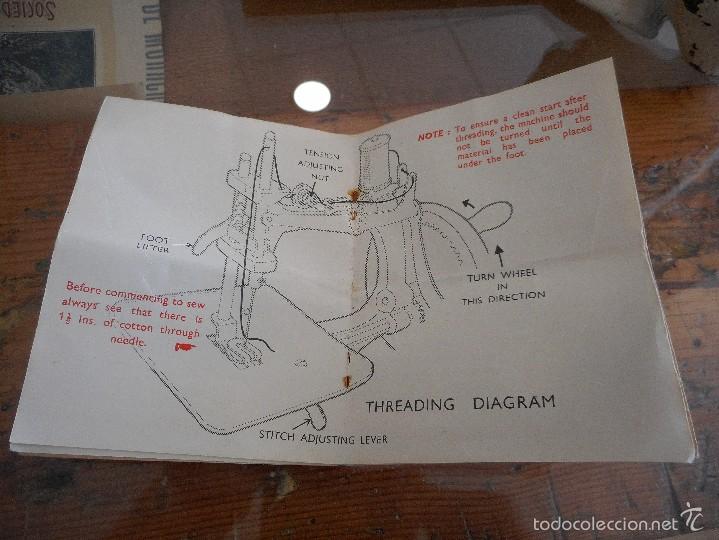 SOCIED
DE MONTA
TENSION
ADJUSTING
NUT
NOTE : To ensure a clean start after
threading, the machine should
not be turned until the
material has been placed
under the foot.
FOOT
LIFTER
TURN WHEEL
IN
THIS DIRECTION
Before commencing to sew
always see that there is
1½ ins. of cotton through
needle.
THREADING DIAGRAM
STITCH ADJUSTING LEVER
todocoleccion.net